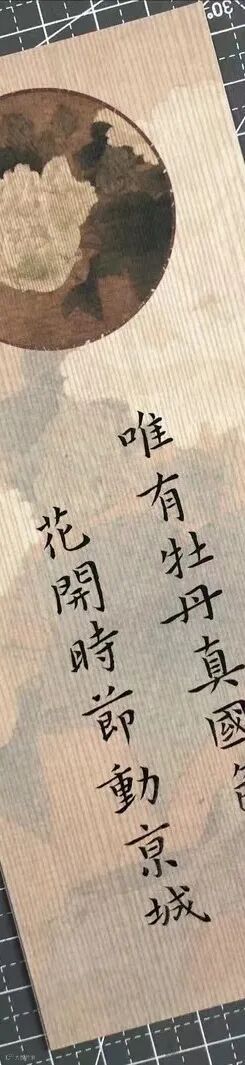 唯有牡丹真國
花開時節動亰城
30°